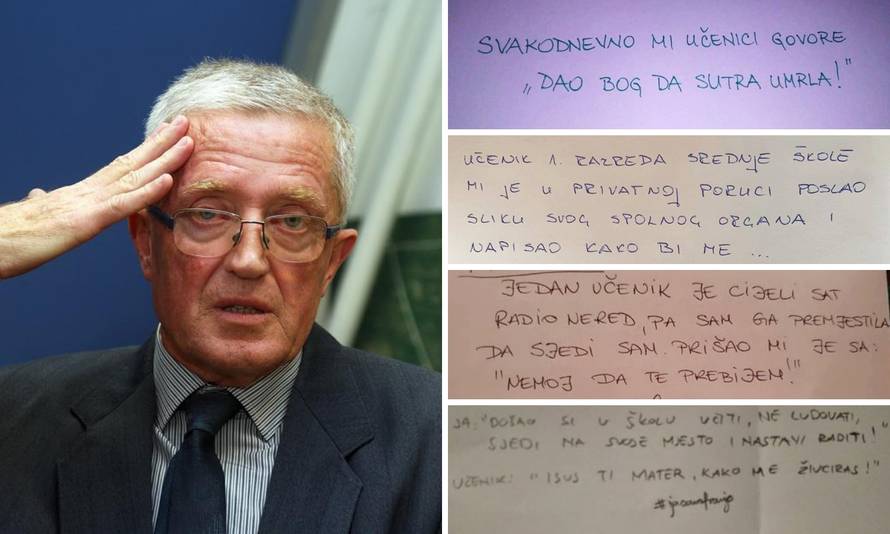 SVAKODNEVNO MI UČENICI GOVORE
„DAO BOG DA SUTRA UMRLA!"
UČENIK 1. RAZREDA SREDNJE ŠKOLE
MI JE U PRIVATNOJ PORUCI POSLAO
SLIKU SVOG SPOLNOG ORGANA I
NAPISAO KAKO BI ME ...
JEDAN UČENIK JE CIJELI SAT
RADIO NERED, PA SAM GA PREMJESTILA
DA SJEDI SAM. PRIŠAO MI JE SA:
"NEMOJ DA TE PREBIJEM!"
JA: "DOŠAO SI U ŠKOLU UČITI, NE LUDOVATI,
SJEDI NA SVOJE MJESTO I NASTAVI RADITI!"
UČENIK: "ISUS TI MATER, KAKO ME ŽIVCIRAŠ!"
#jasamfranjo